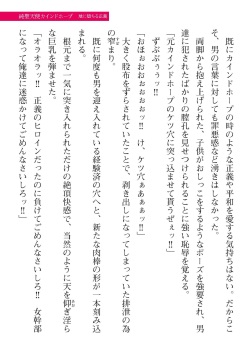 カインドホープ
既にカインドホープの時のような正義や平和を愛する気持ちはない。だからこ
そ、男の言葉に対しても罪悪感など湧きはしなかった。
両脚から抱え上げられた、子供がおしっこをするようなポーズを強要され、男
達に犯されたばかりの膣孔を見せつけられることに強い恥辱を覚える。
「元カインドホープのケツ穴に突っ込ませて貰うぜぇっ!!」
ずぶぶうぅっ!!
「おほぉおぉぉぉぉぉっ!! け、ケツ穴ぁあぁぁッ!!」
大きく股布をずらされていたことで、剥き出しになってしまっていた排泄の為
の窄まり。
既に何度も男を迎え入れている経験済の穴へと、新たな肉棒が一本刻み込
まれる。
根元まで一気に突き入れられただけの絶頂快感で、当然のように天を仰ぎ淫ら
な巨乳を弾ませた。
「オラオラッ!! 正義のヒロインだったのに負けてごめんなさいしろ!! 女幹部
になって俺達に迷惑かけてごめんなさいしろッ!!」